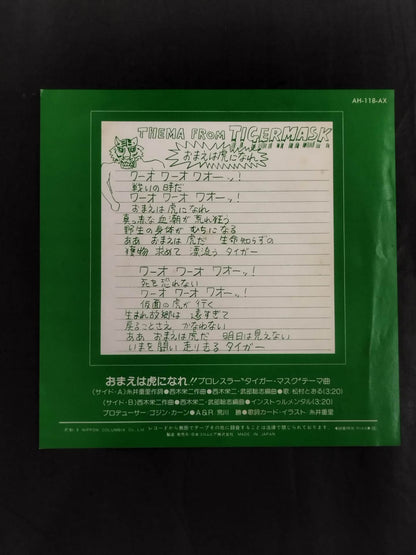 AH-118-AX
THEMA FROM TIGERMASK
おまえは虎になれ
ワーオ ワーオ ワオーッ!
戦いの時だ
ワーオ ワーオ ワオーッ!
おまえは虎になれ
真っ赤な血潮が荒れ狂う
野生の身体が むちになる
ああ おまえは虎だ 生命知らずの
獲物 求めて 漂流う タイガー
ワーオ ワーオ ワオーッ!
死を恐れない
ワーオ ワーオ ワオーッ!
仮面の虎が行く
生まれ故郷は 遠すぎて
戻ることさえ かなわない
ああ おまえは虎だ 明日は見えない
いまを闘い 走り去る タイガー
おまえは虎になれ!! プロレスラー“タイガー・マスク”テーマ曲
(サイド・A)糸井重里作詞●西木栄二作曲●西木栄二・武部聡志編曲●歌・松村とおる(3:20)
(サイド・B)西木栄二作曲●西木栄二・武部聡志編曲●インストゥルメンタル(3:20)
プロデューサー・ゴジン・カーン●A&R.荒川 勝●歌詞カード・イラスト 糸井重里
NIPPON COLUMBIA Co., Ltd. レコードから無断でテープその他に録音することは法律で禁じられております。
製造 発売元 日本コロムビア株式会社 MADE IN JAPAN